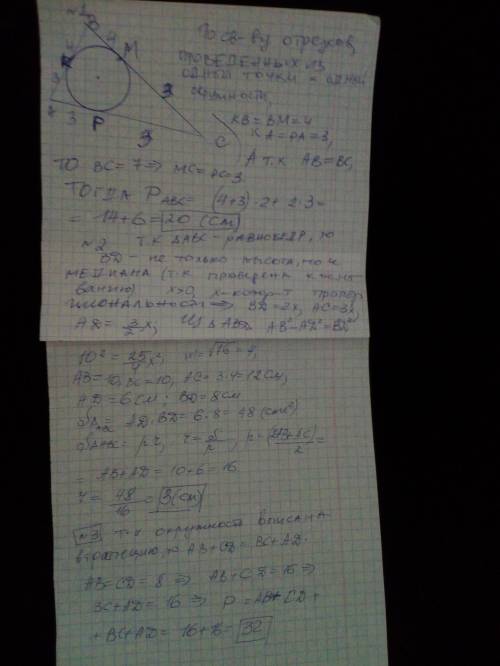 По св-ву отрезков,
проведенных из
одной точки к одной
окружности,
KB = BM = 4
KA = PA = 3,
A т.к AB = BC,
то BC = 7 ⇒ MC = PC = 3
Тогда P ABC = (4+3)·2 + 2·3 =
= 14+6 = 20 (см)
№2 т.к ΔABC - равнобедр, то
BD - не только высота, но и
медиана (т.к проведена к осно
ванию) x>0, x-коэф-т пропор
циональности ⇒ BD = 2x, AC = 3x,
AD = 3/2 x, из ΔABD ⇒ AB²-AD² = BD²
10² = 25/4 x², x = √16 = 4,
AB = 10, BC = 10, AC = 3·4 = 12 см,
AD = 6 см; BD = 8 см
AD·BD = 6·8 = 48 (см²)
= AB+AD = 10+6 = 16
r = 48/16 = 3 (см)
№3 т.к окружность вписана
в трапецию, то AB+CD = BC+AD.
AB = CD = 8 ⇒ AB+CD = 16 ⇒
BC+AD = 16 ⇒ P = AB+CD+
+BC+AD = 16+16 = 32